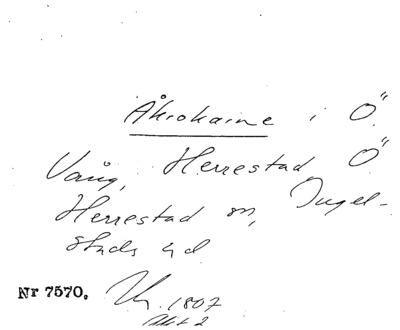 Åkrokarne i Ö.
Vång, Herrestad Ö
Herrestad sn, Ingel-
stads hd
Nr 7570. 1807
Akt 2